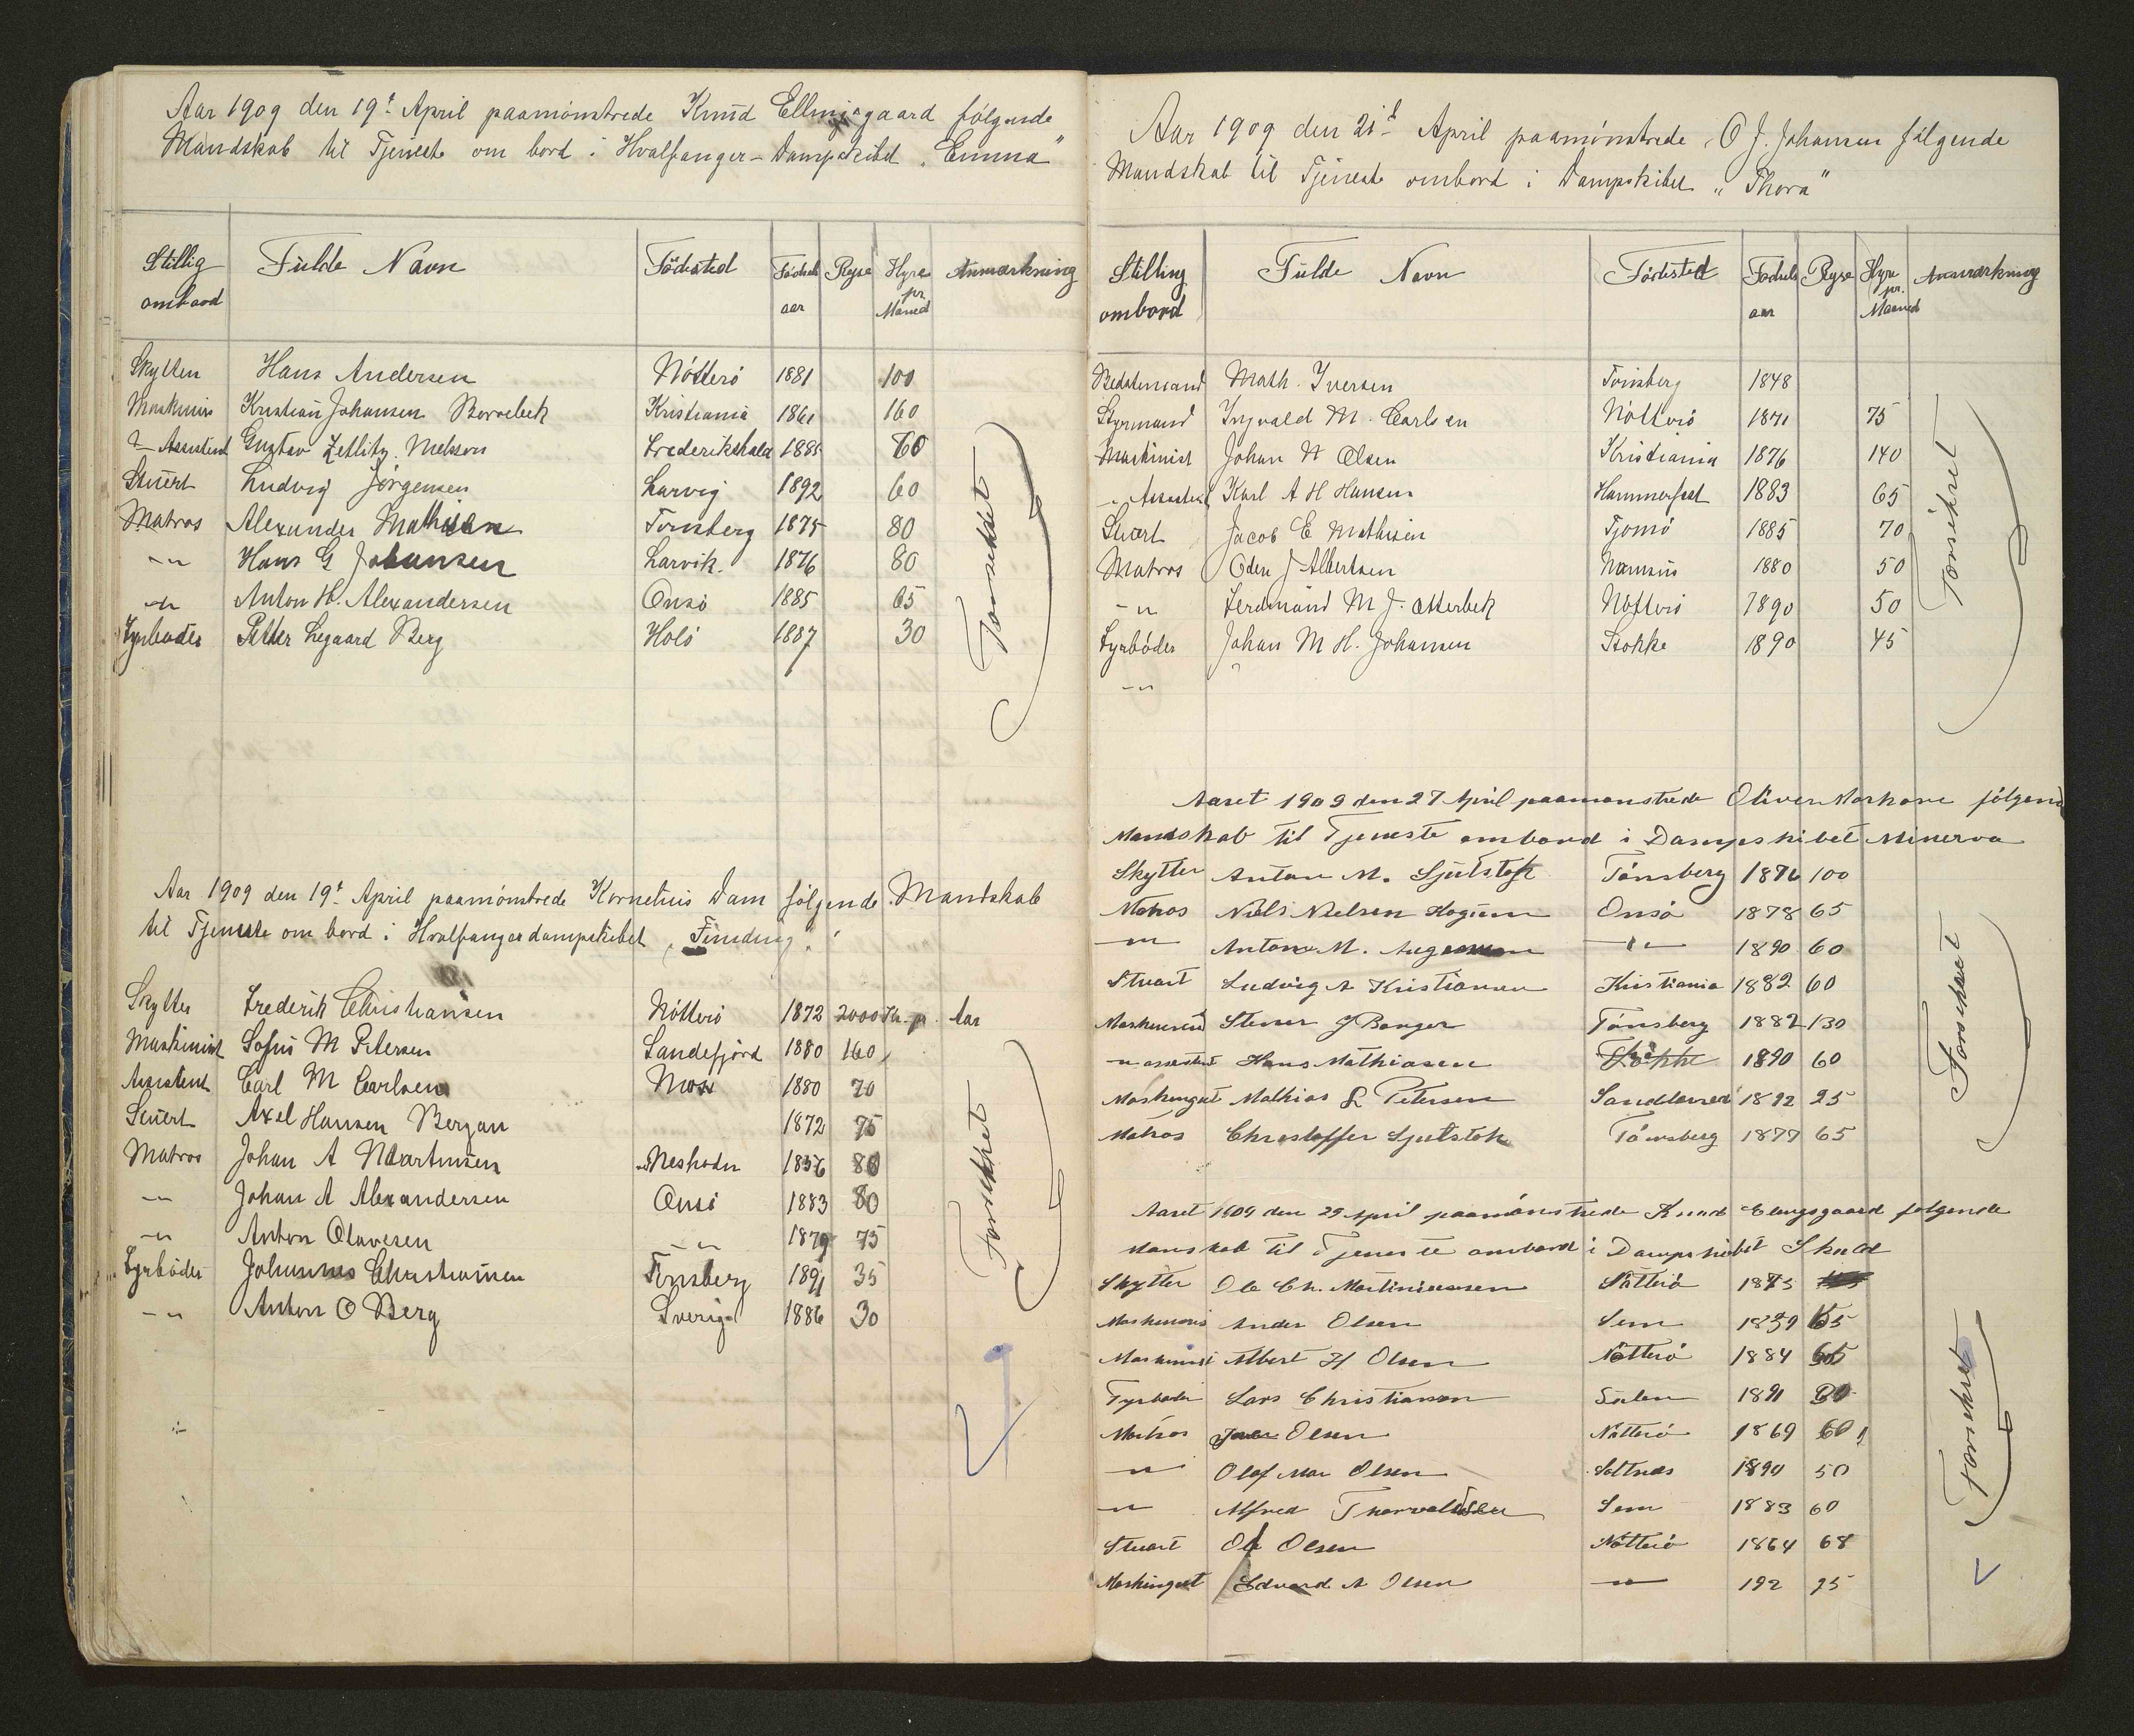 Aar 1909 den 19t April paamönstrede Knud Ellingsgaard følgende
Mandskab til Tjeneste om bord i Hvalfanger-Dampskibet "Emma"
Stillig ombord Fulde Navn Födested Födsels aar Rejse Hyre pr Maaned Anmærkning
Skytten Hans Andersen Nötterö 1881 100
Maskinis Kristian Johansen Borrebek Kristiania 1861 160
"- Assistent Gustav Zetlitz Nielsen Frederikshald 1885 60
Stuert Ludvig Jörgensen Larvig 1892 60
Matros Alexander Mathisen Tonsberg 1875 80
-"- Hans G Johansen Larvik. 1876 80
-"- Anton H. Alexandersen Onsö 1885 65
Fyrböder Petter Legaard Berg Holö 1887 30
Forsikket
Aar 1909 den 19t April paamönstrede Kornelius Dam følgende Mandskab
til Tjeneste om bord i Hvalfangerdampskibet
Skytter Frederik Christiansen Nötterö 1872 2000 Kr. pr. Aar
Maskinist Sofus M Petersen Sandefjord 1880 160
Assistent Carl M Carlsen Moss 1880 70
Stuert Axel Hansen Bergan 1872 75
Matros Johan A Martinsen Nesodn 1856 80
-"- Johan A Alexandersen Onsö 1883 80
-"- Anton Olavesen -"- 1879 75
Fyrböder Johannes Christiansen Tonsberg 1891 35
-"- Anton O Berg Sverige 1886 30
Forsikket
Aar 1909 den 21d April paamönstrede O J. Johansen følgende
Mandskab til Tjeneste ombord i Dampskibet "Thora"
Stilling ombord Fulde Navn Födested Födsels aar Rejse Hyre pr. Maaned Anmærkning
Bedstemand Math. Iversen Tonsberg 1848
Styrmand Ingvald M. Carlsen Nötterö 1871 75
Maskinist Johan N Olsen Kristiania 1876 140
-"- Assistent Karl A H Hansen Hammerfest 1883 65
Stuert Jacob E Mathisen Tjömö 1885 70
Matros Oden J Albertsen 1880 50
-"- Ferdinand M J. Otterbek Nötterö 1890 50
Fyrböder Johan M H. Johansen Stokke 1890 45
-"-
Forsikret
Aaret 1909 den 27 April paamonstrede Oliver følgende
Mandskab til Tjeneste ombord i Dampskibet Minerva
Skytter Anton M. Sjutstok Tönsberg 1876 100
Matros Niels Nielsen Onsö 1878 65
-"- Anton M. -"- 1890 60
Stuart Ludvig A Kristiansen Kristiania 1882 60
Maskinist Stener J Banger Tönsberg 1882 130
-"- assistent Hans Mathiasen 1890 60
Maskingut Mathias L Petersen 1892 25
Matros Christoffer Sjutstok Tönsberg 1877 65
Forsikret
Aaret 1909 den 29 April paamönstrede Knud Elengsgaard følgende
Manskab til Tjeneste ombord i Dampskibet Skald
Skytter Ole Ch. Martiniussen Nötterö 1873
Maskinist Ander Olsen Sem 1859
Maskinist Albert H Olsen Nötterö 1884
Fyrböder Lars Christiansen 1891
Matros Olsen Nötterö 1869 60
-"- Olaf Mar Olsen Soltnes 1890 50
-"- Alfred Thorvaldsen Sem 1883 60
Stuart Ole Olsen Nötterö 1864 68
Maskingut Edvard A Olsen -"- 192 25
Forsikret